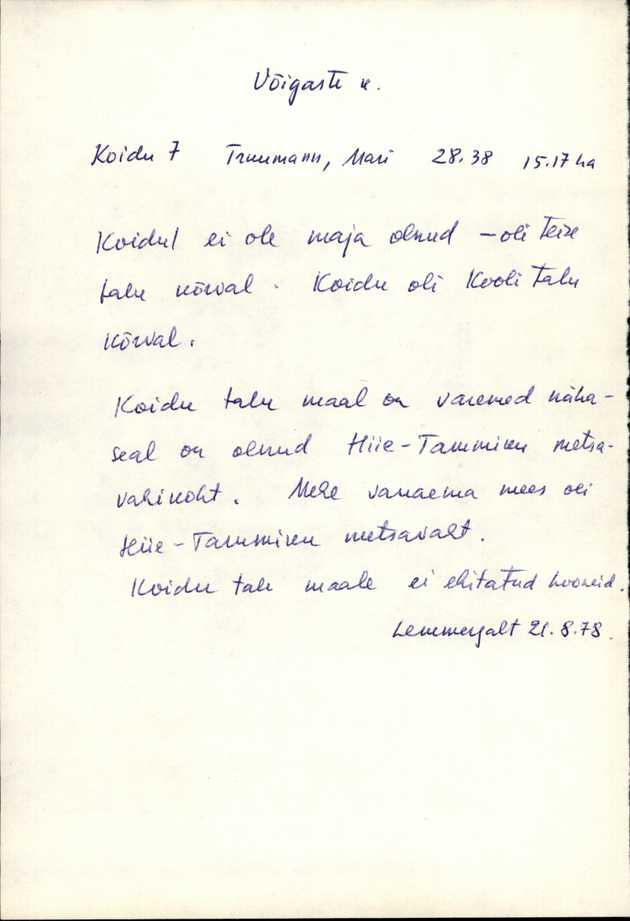 Võigaste k.
Koidu 7 Truumann, Mari 28.38 15.17 ha
Koidul ei ole maja olnud – oli teise
talu kõrval. Koidu oli Kooli talu
kõrval.
Koidu talu maal on varemed näha –
seal on olnud Hiie-Tammiku metsa-
vahikoht. Mehe vanaema mees oli
Hiie-Tammiku metsavaht.
Koidu talu maale ei ehitatud hooneid.
21.8.78.